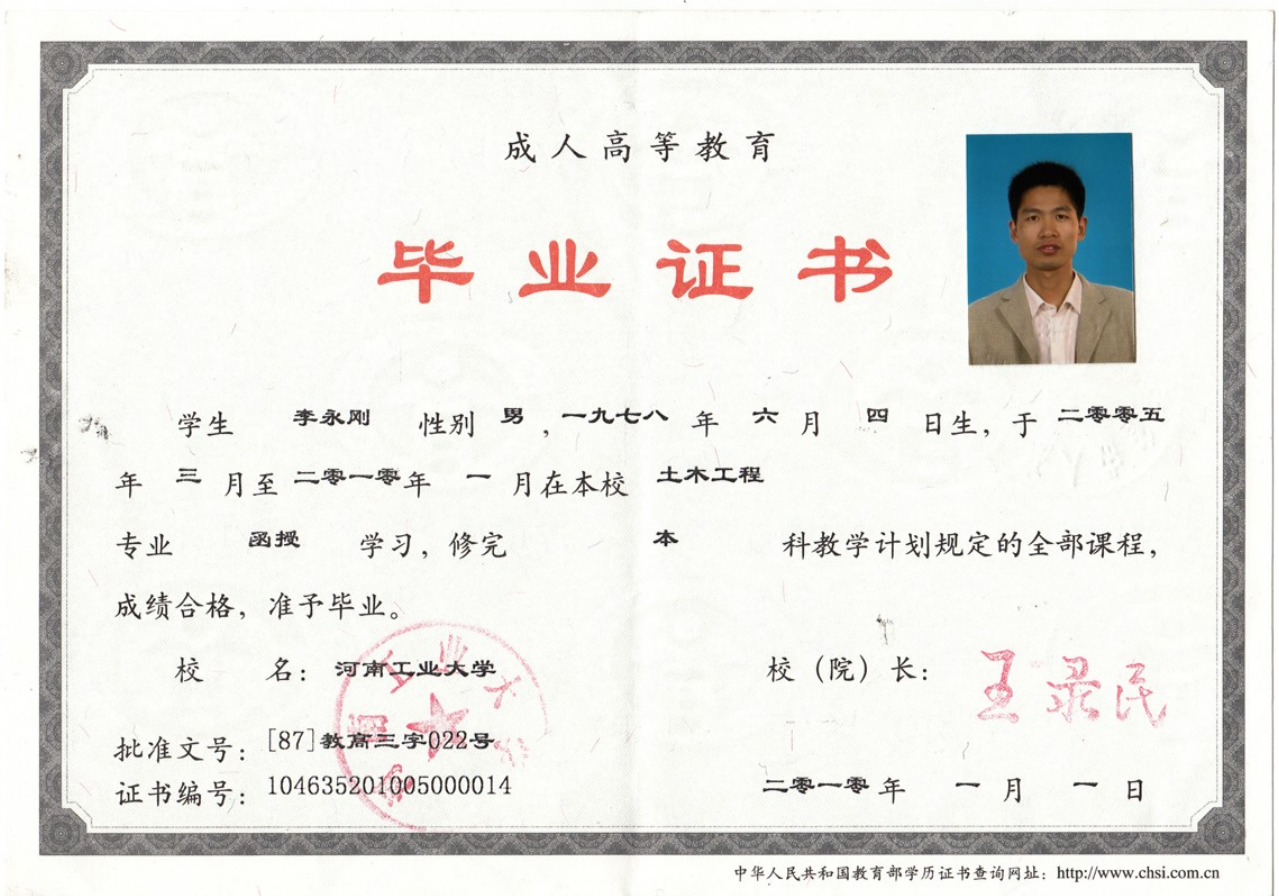 成人高等教育
毕业证书
学生 李永刚 性别 男，一九七八 年 六 月 四 日生，于 二零零五
年 三 月至 二零一零年 一 月在本校 土木工程
专业 函授 学习，修完 本 科教学计划规定的全部课程，
成绩合格，准予毕业。
校 名：河南工业大学
校（院）长：王录民
批准文号：[87]教高三字022号
证书编号：104635201005000014
二零一零年 一 月 一 日
中华人民共和国教育部学历证书查询网址：http://www.chsi.com.cn